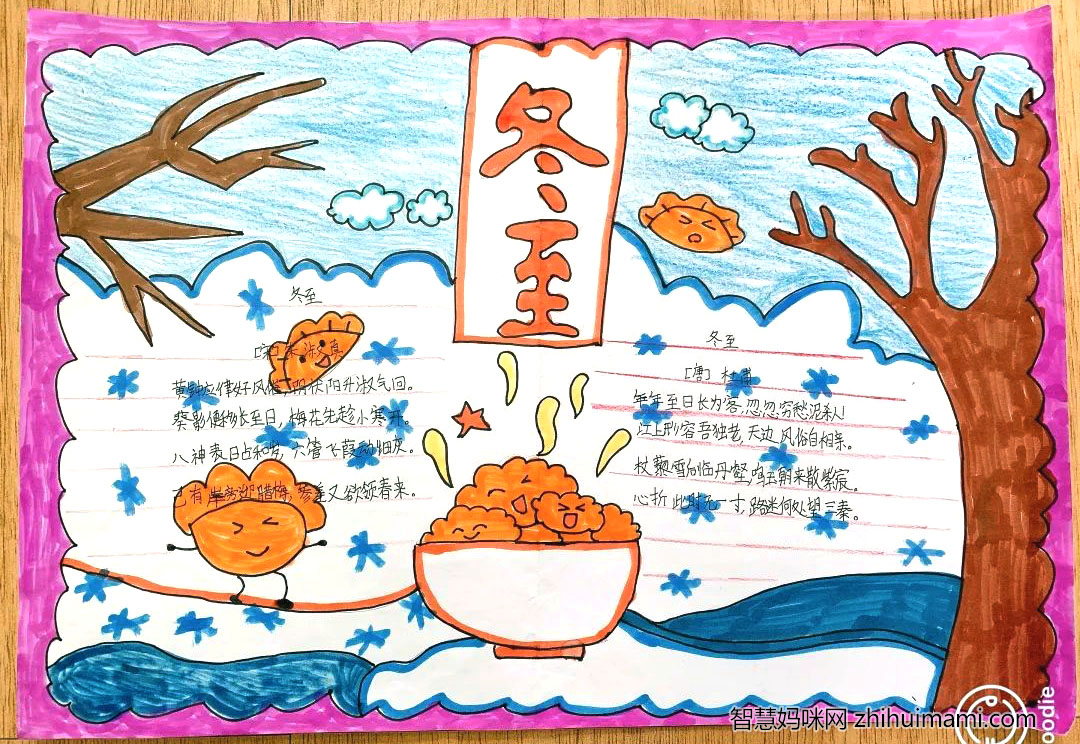 冬至
冬至
[宋]朱淑真
黄钟应律好风催,阴伏阳升淑气回。
葵影便移长至日,梅花先趁小寒开。
八神表日占和岁,六管飞葭动细灰。
已有岸旁迎腊柳,参差又欲领春来。
冬至
[唐]杜甫
年年至日长为客,忽忽穷愁泥杀人!
江上形容吾独老,天边风俗自相亲。
杖藜雪后临丹壑,鸣玉朝来散紫宸。
心折此时无一寸,路迷何处望三秦。
智慧妈咪网 zhihuimami.com
oodie